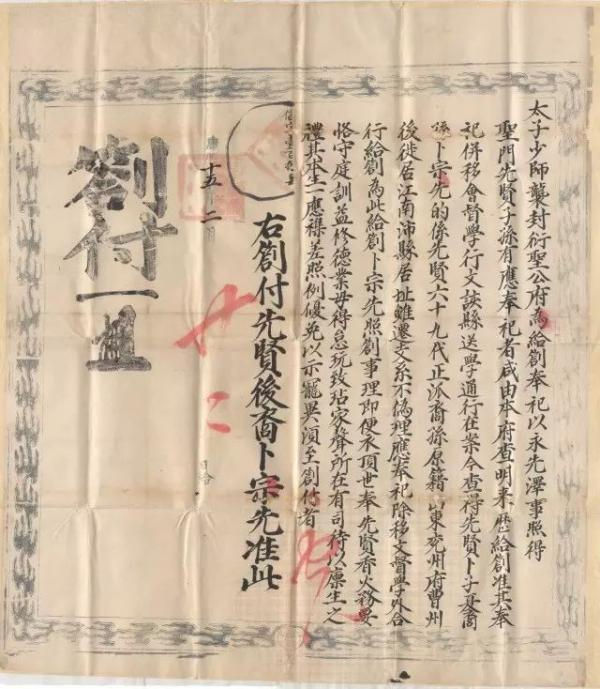 太子少師襲封衍聖公府為給劄奉祀以永先澤事照得
聖門先賢子孫有應奉祀者咸由本府查明来歷給劄准其奉
祀併移會督學行文該縣送學通行在案今查得先賢卜子夏裔
孫卜宗先的係先賢六十九代正派裔孫原籍山東兖州府曹州
後徙居江南沛縣居址雖遷支系不偽理應奉祀除移文督學外合
行給劄為此給劄卜宗先照劄事理即便承頂世奉先賢香火務要
恪守庭訓益修德業毋得怠玩致玷家聲所在有司待以廩生之
禮其本生一應襍差照例優免以示寵異湏至劄付者
右劄付先賢後裔卜宗先准此
康 十五 二
廿二
劄付